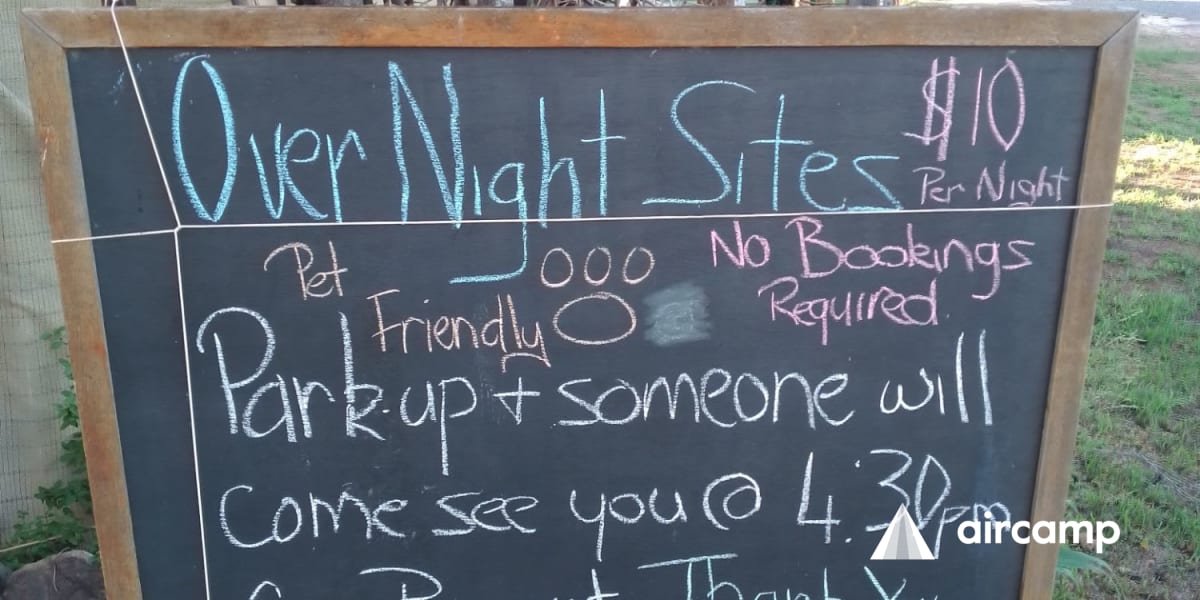 Over Night Sites $10
Per Night
Pet
Friendly
No Bookings
Required.
Park up + someone will
come see you @ 4:30pm
aircamp
Thank